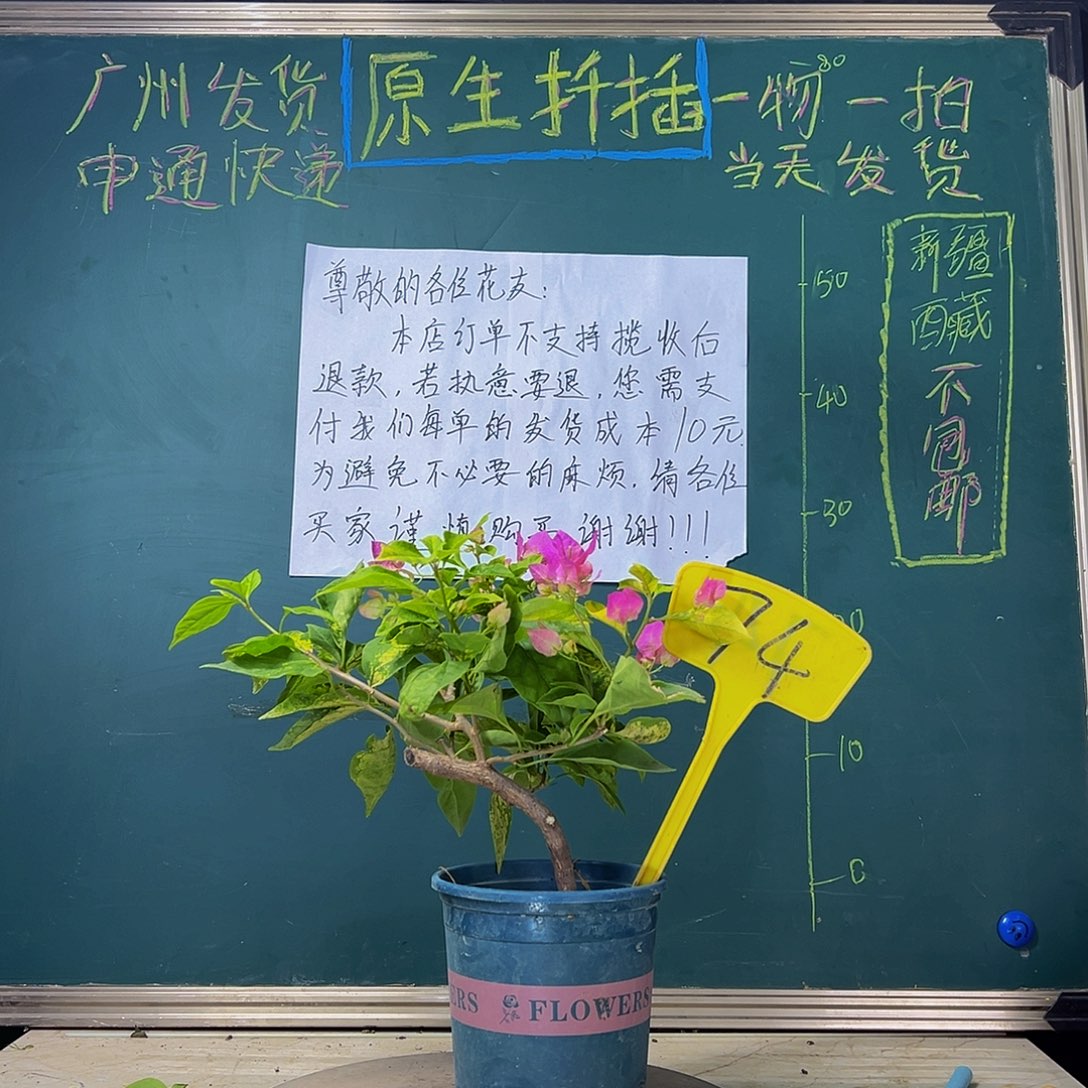 广州发货
申通快递
原生扦插
一物一拍
80
当天发货
新疆
西藏
不包邮
50
40
30
10
0
尊敬的各位花友：
本店订单不支持揽收后
退款，若执意要退，您需支
付我们每单的发货成本10元.
为避免不必要的麻烦.请各位
买家谨慎购买 谢谢!!!
74
ERS FLOWERS